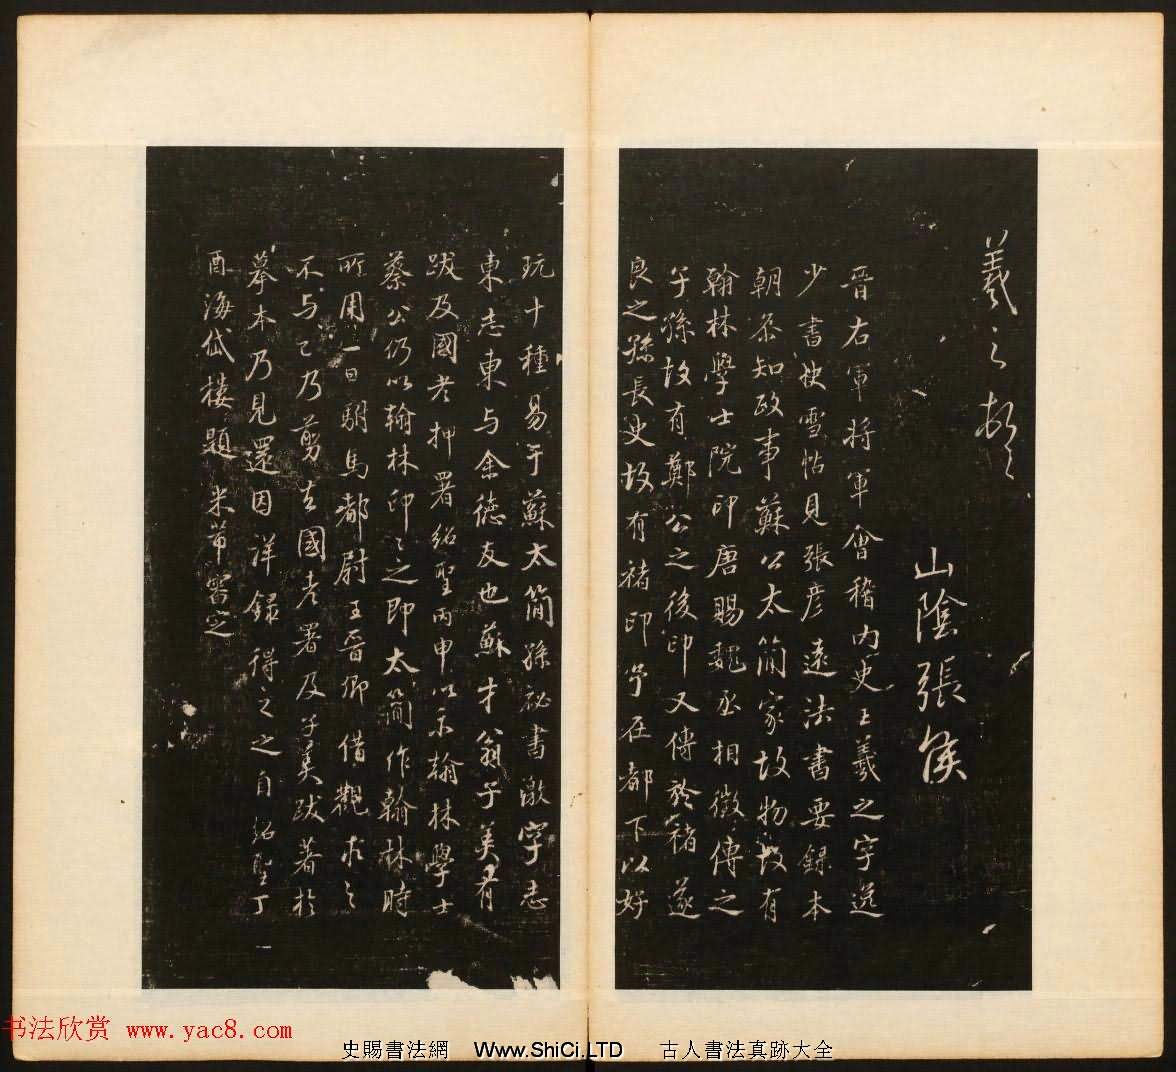 羲之頓〻
山陰張侯
晉右軍將軍會稽內史王羲之字逸
少書快雪帖見張彥遠法書要録本
朝叅知政事蘇公太簡家故物故有
翰林學士院印唐賜魏丞相徵傳之
子孫故有鄭公之後印又傳於褚遂
良之孫長史故有褚印予在都下以好
玩十種易于蘇太簡孫祕書激字志
東志東与余德友也蘇才翁子美有
跋及國老押署紹聖丙申以示翰林學士
蔡公仍以翰林印〻之即太簡作翰林時
所用一日駙馬都尉王晉卿借觀求之
不与已乃剪去國老署及子美跋著於
摹本乃見還因詳録得之之自紹聖丁
酉海岱樓題 米芾審定
书法欣赏 www.yac8.com
史賜書法網 Www.ShiCi.LTD 古人書法真跡大全